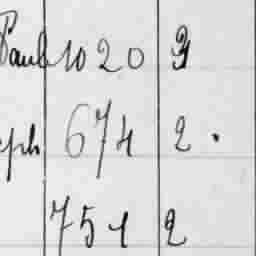 Paul 1020 3
eph 674 2 .
751 2